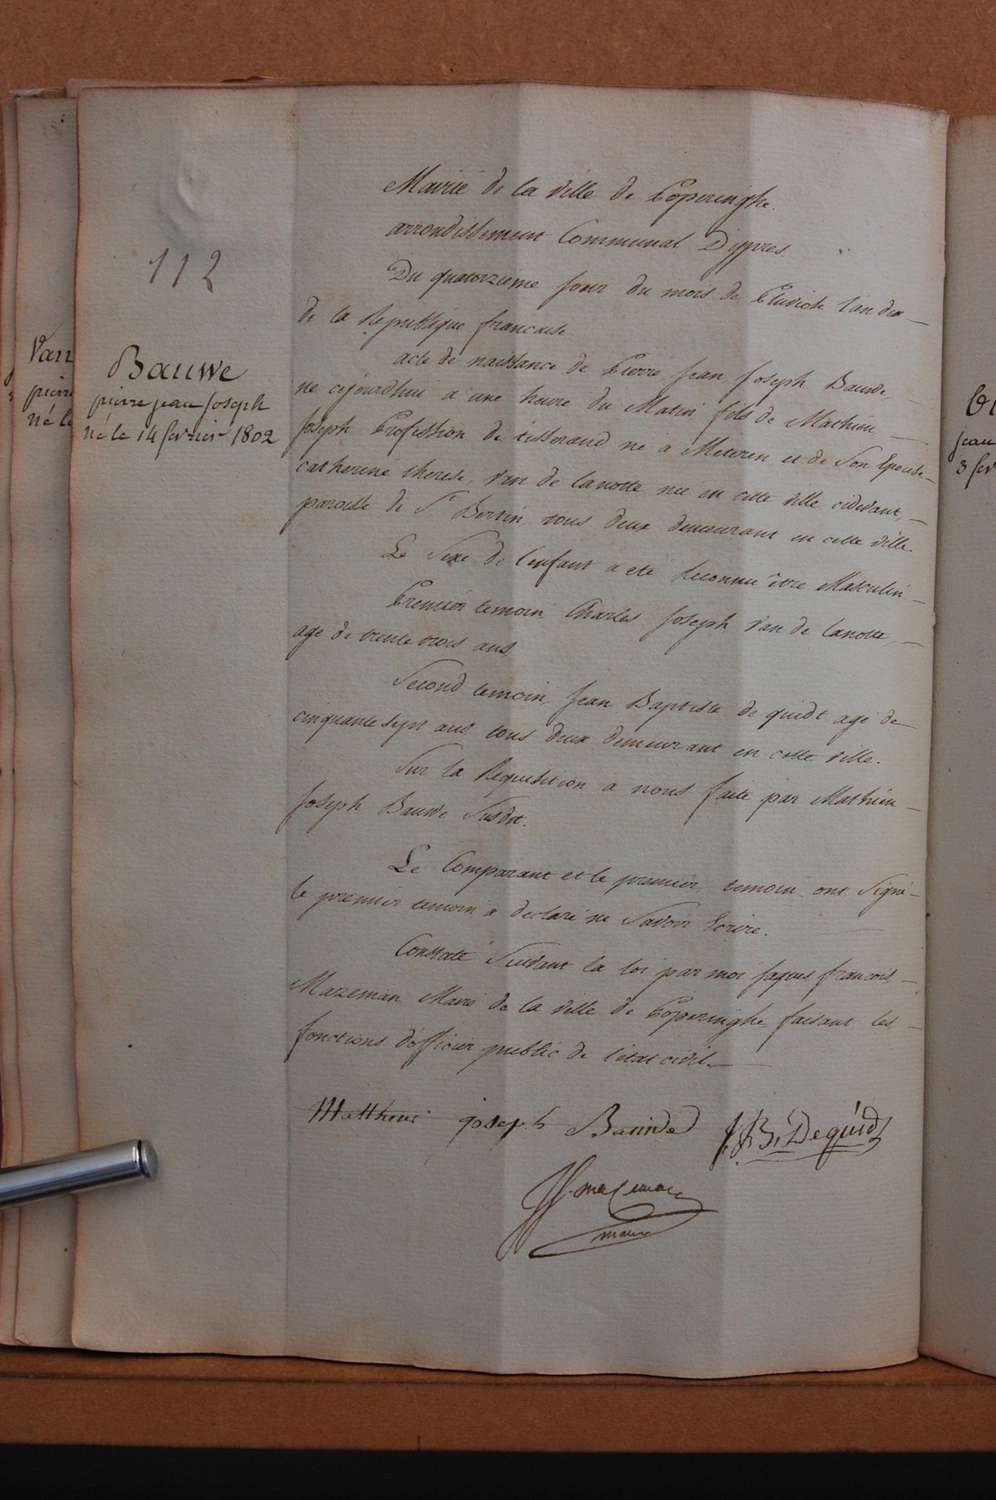 112
Bauwe
pierre jean joseph
né le 14 fevrier 1802
Mairie de la ville de Poperinghe.
arrondissement Communal D'ypres
Du quatorzieme jour du mois de Pluviose l'an dix
de la Republique francaise.
acte de naissance de Pierre Jean Joseph Bauwe,
né cejourdhui a une heure du Matin fils de Mathieu
Joseph Profession de tisserand né a Meteren et de Son Epouse
catherine therese van de lanotte née en cette ville cidevant
paroisse de St Bertin tous deux demeurant en cette ville.
Le Sexe de l'enfant a eté Reconnu être Masculin
Premier temoin Charles Joseph van de lanotte,
agé de trente trois ans
Second temoin, Jean Baptiste de quidt agé de
cinquante sept ans tous deux demeurant en cette ville.
Sur la Requisition a nous faite par Mathieu
Joseph Bauwe Susdit.
Le Comparant et le premier temoin ont Signé
le premier temoin a declaré ne Savoir Ecrire.
Constaté Suivant la loi par moi Jaques francois
Mazeman Maire de la ville de Poperinghe faisant les
fonctions d'officier public de l'etat civil.
Mattheus joseph Bauwe J.B. Dequidt
JF. mazeman
maire
Van
pierre
né le
jean
3 fev